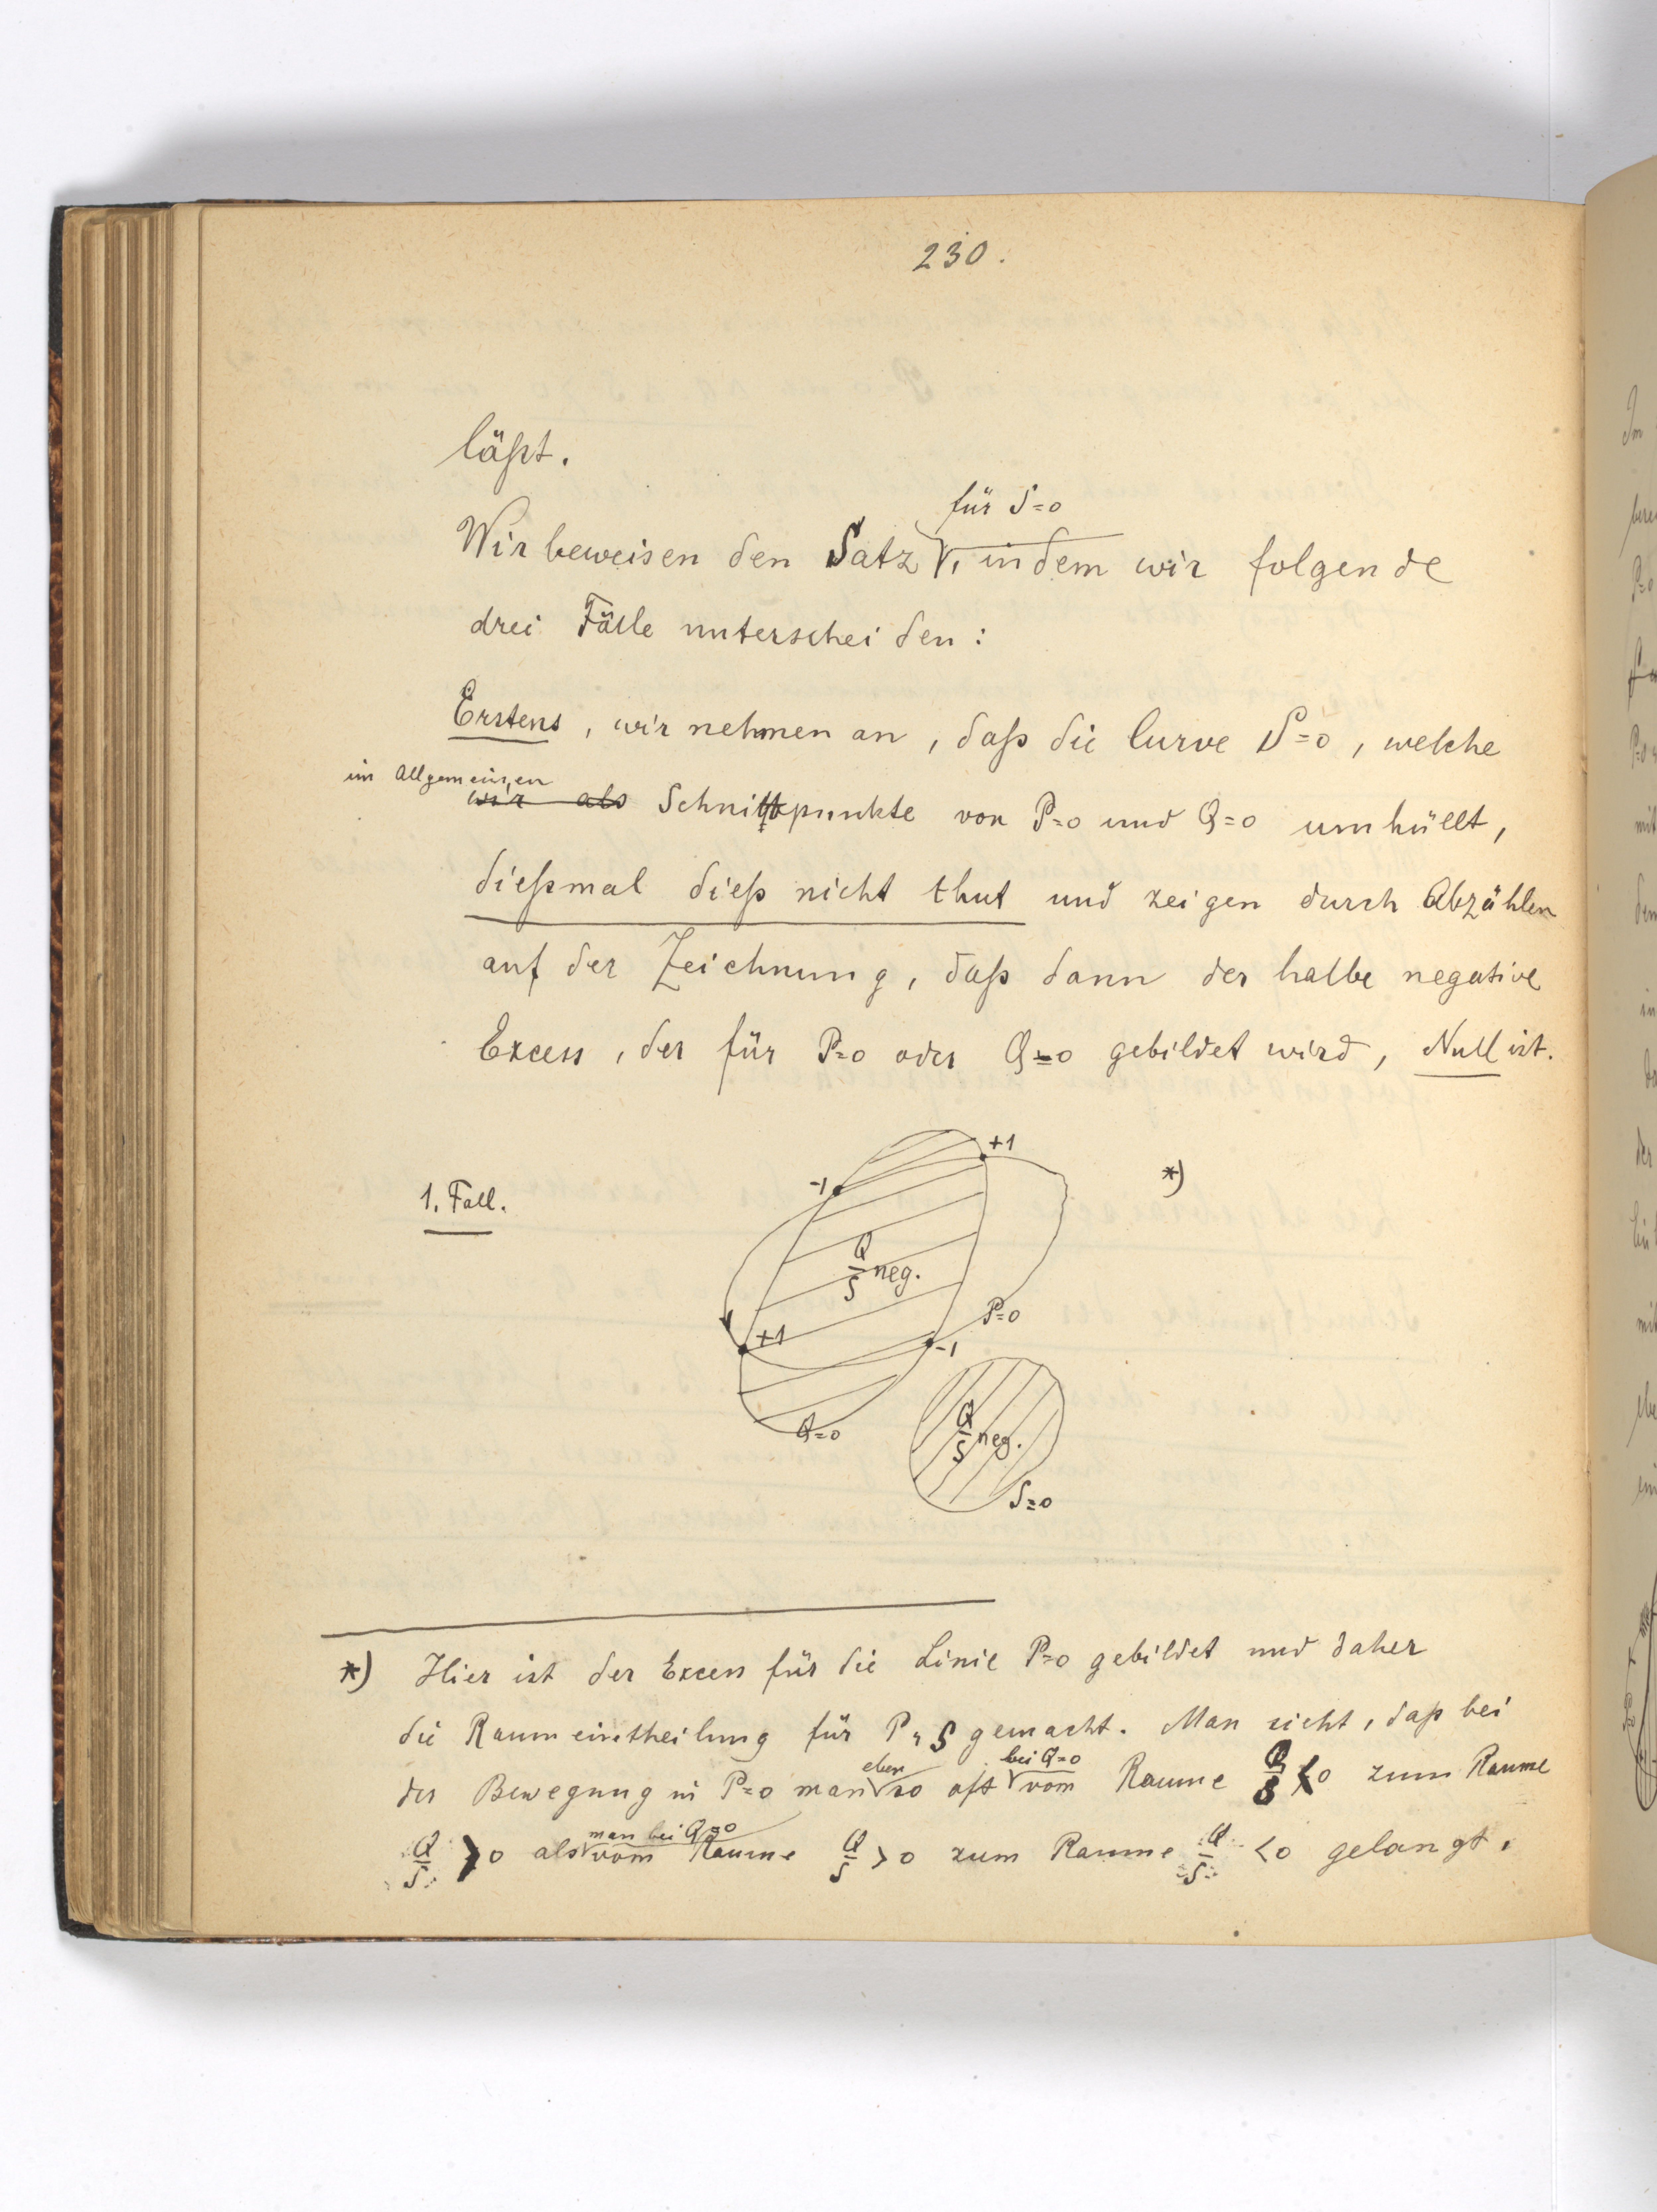 230.
läßt.
für S=0
Wir beweisen den Satz, indem wir folgende
drei Fälle unterscheiden:
Erstens, wir nehmen an, daß die Curve S=0, welche
im Allgemeinen
wir als Schnittpunkte von P=0 und Q=0 umhüllt,
dießmal dieß nicht thut und zeigen durch Abzählen
auf der Zeichnung, daß dann der halbe negative
Excess, der für P=0 oder Q=0 gebildet wird, Null ist.
1. Fall.
-1
+1
*)
Q/S neg.
P=0
+1
-1
Q=0
Q/S neg.
S=0
*) Hier ist der Excess für die Linie P=0 gebildet und daher
die Raumeintheilung für P, S gemacht. Man sieht, daß bei
eben bei Q=0
der Bewegung in P=0 man so oft vom Raume Q/S <0 zum Raume
man bei Q=0
Q/S >0 als vom Raume Q/S >0 zum Raume Q/S <0 gelangt.